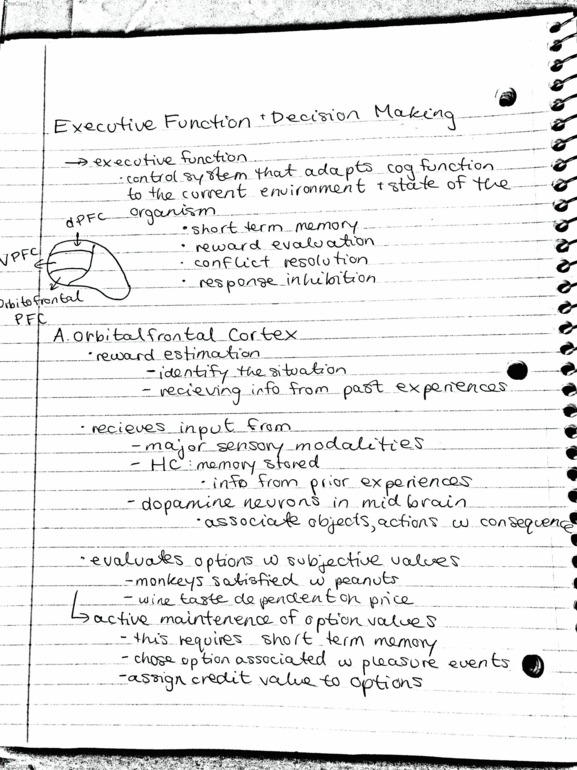 Executive Function + Decision Making
→ executive function
· control system that adapts cog function
to the current environment + state of the
organism
dPFC
• short term memory
• reward evaluation
VPFC
· conflict resolution
· response inhibition
Orbitofrontal
PFC
A. Orbitalfrontal Cortex
• reward estimation
- identify the situation
- recieving info from past experiences
• recieves input from
- major sensory modalities
- HC: memory stored
• info from prior experiences
- dopamine neurons in midbrain
• associate objects, actions w consequence
· evaluates options w subjective values
- monkeys satisfied w peanuts
- wine taste dependent on price
↳ active maintenence of option values
- this requires short term memory
- chose option associated w pleasure events
- assign credit value to options